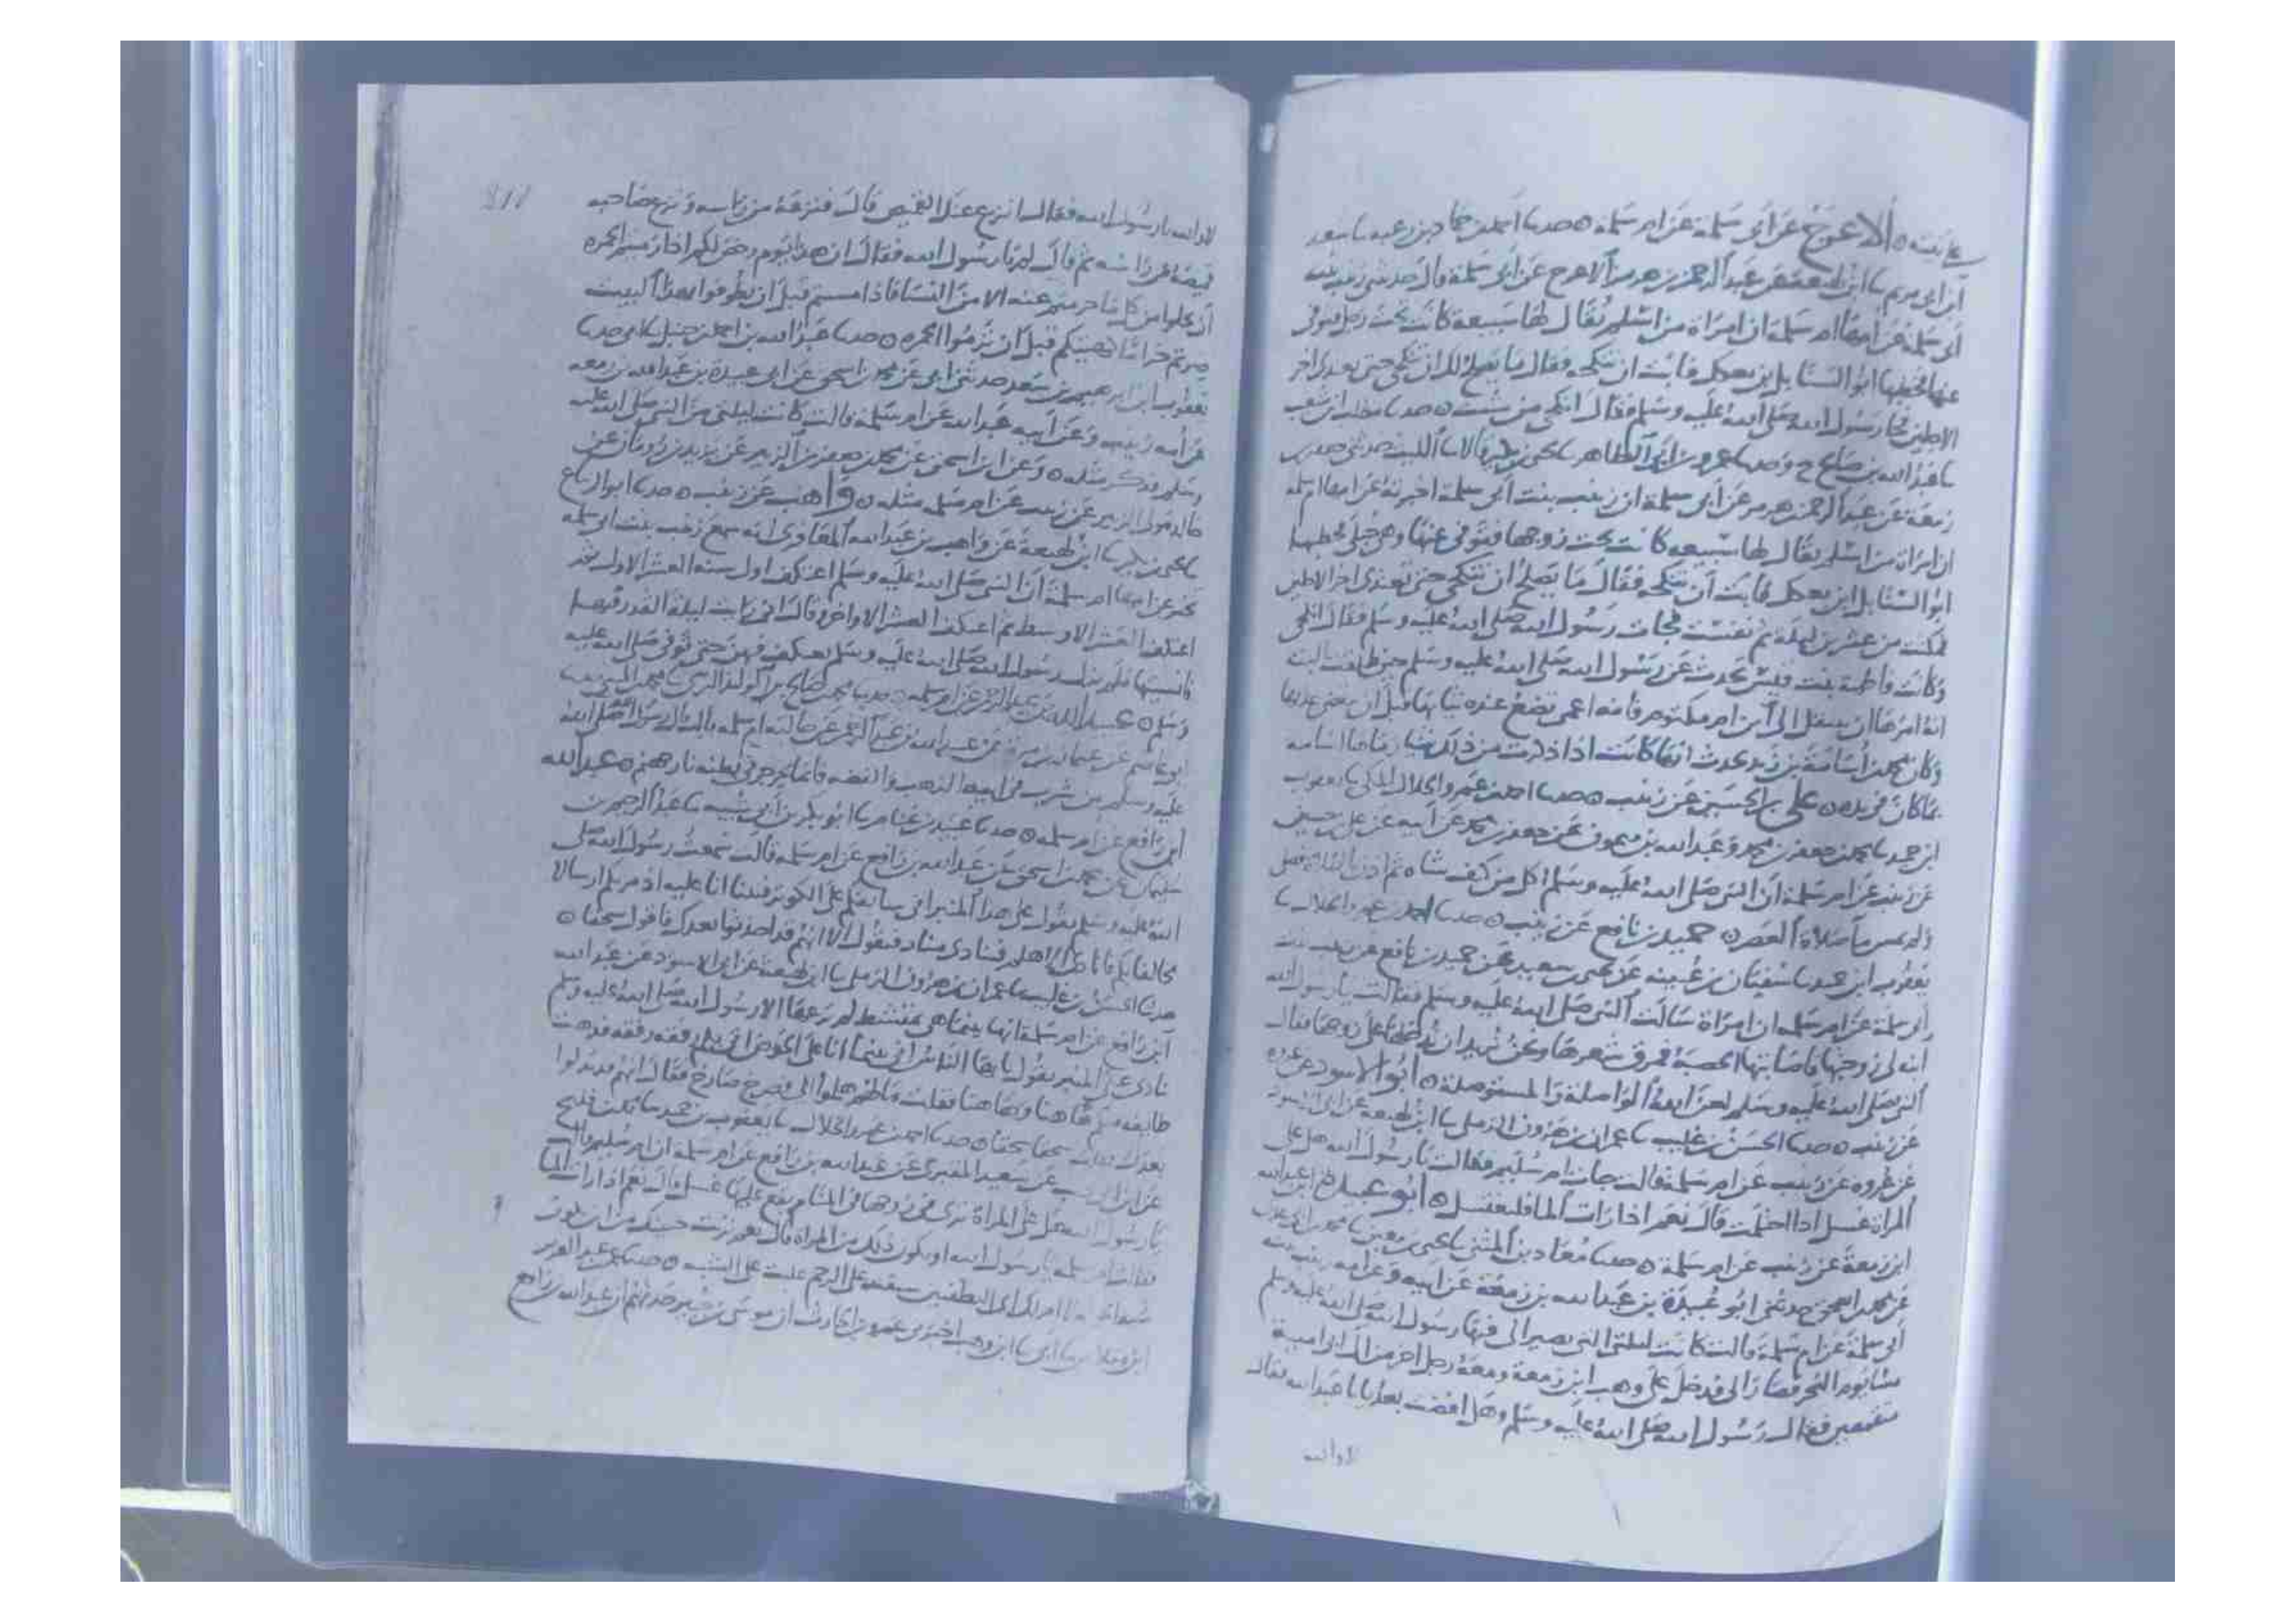 عائشة ه الاعرج عن ابي سلمة عن ام سلمة ه حدثنا احمد بن حماد بن زغبة سا سعيد
ابن ابي مريم سا ابن لهيعة عن عبد الرحمن بن هرمز الاعرج عن ابي سلمة قال حدثتني زينب بنت
ابي سلمة عن امها ام سلمة ان امراة من اسلم يقال لها سبيعة كانت تحت رجل فتوفى
عنها فخطبها ابو السنابل بن بعكك فابت ان تنكحه فقال ما يصلح لك ان تنكحي حتى تعتدي اخر
الاجلين فجات رسول الله صلى الله عليه وسلم فقال انكحي من شئت ه حدثنا مطلب بن شعيب
سا عبد الله بن صالح ح وحدثنا عمرو بن ابي الطاهر سا يحيى بن بكير قالا سا الليث حدثني جعفر بن
ربيعة عن عبد الرحمن بن هرمز عن ابي سلمة ان زينب بنت ابي سلمة اخبرته عن امها ام سلمة
ان امراة من اسلم يقال لها سبيعه كانت تحت زوجها فتوفى عنها وهي حبلى فخطبها
ابو السنابل ابن بعكك فابت ان تنكحه فقال ما يصلح ان تنكحي حتى تعتدي اخر الاجلين
فمكثت من عشرين ليلة ثم نفست فجات رسول الله صلى الله عليه وسلم فقال انكحي
وكانت فاطمة بنت قيس تحدث عن رسول الله صلى الله عليه وسلم حين طلقت البتة
انه امرها ان تنتقل الى ابن ام مكتوم فانه اعمى تضع عنده ثيابها قبل ان تمضي عدتها
وكان محمد بن اسامة بن زيد يحدث انها كانت اذا ذكرت من ذلك شيا رماها اسامه
بما كان في يده ه علي بن الحسين عن زينب ه حدثنا احمد بن عمرو الخلال المكي سا يعقوب
ابن حميد سا محمد بن جعفر بن محمد وعبد الله بن ميمون عن جعفر بن محمد عن ابيه عن علي بن حسين
عن زينب عن ام سلمة ان النبي صلى الله عليه وسلم اكل من كتف شاه ثم اذن بالصلاة فصلى
ولم يمس ما صلاة العصر ه حميد بن نافع عن زينب ه حدثنا احمد بن عمرو الخلال سا
يعقوب ابن حميد سا سفيان بن عيينه عن يحيى بن سعيد عن حميد بن نافع عن زينب بنت
ابي سلمة عن ام سلمه ان امراة سالت النبي صلى الله عليه وسلم فقالت يا رسول الله
ابنه لي زوجتها فاصابتها الحصبة فمرق شعرها ونحن نريد ان ندخلها على زوجها فقال
النبي صلى الله عليه وسلم لعن الله الواصلة والمستوصلة ه ابو الاسود عن عروة
عن زينب ه حدثنا الحسن بن غليب سا عمران بن هرون الرملي سا ابن لهيعة عن ابي الاسود
عن عروه عن زينب عن ام سلمة قالت جات ام سليم فقالت يا رسول الله هل على
المراة غسل اذا احتلمت قال نعم اذا رات الما فلتغتسل ه ابو عبيدة بن عبد الله
ابن زمعة عن زينب عن ام سلمة ه حدثنا معاذ بن المثنى سا يحيى بن معين سا محمد بن ابي عدي
عن محمد بن اسحق حدثني ابو عبيدة بن عبد الله بن زمعة عن ابيه وعن امه زينب بنت
ابي سلمة عن ام سلمة قالت كانت ليلتي التي يصير الي فيها رسول الله صلى الله عليه وسلم
مسا يوم النحر فصار الي فدخل علي وهب ابن زمعة ومعه رجل اخر من ال ابي امية
متقمصين فقال رسول الله صلى الله عليه وسلم وهل افضت بعد يا ابا عبد الله فقال
لا والله
لا والله يا رسول الله فقال انزع عنك القميص قال فنزعه من راسه ونزع صاحبه
قميصه من راسه ثم قال لم يا رسول الله فقال ان هذا يوم رخص لكم اذا رميتم الجمره
ان تحلوا من كل ما حرمتم عنه الا من النسا فاذا امسيتم قبل ان تطوفوا بهذا البيت
صرتم حراما كهيئتكم قبل ان ترموا الجمره ه حدثنا عبد الله بن احمد بن حنبل سا ابي حدثنا
يعقوب ابن ابرهيم بن سعد حدثني ابي عن محمد بن اسحق عن ابي عبيدة بن عبد الله بن زمعه
عن امه زينب وعن ابيه عبد الله عن ام سلمه قالت كانت ليلتي من النبي صلى الله عليه
وسلم فذكر مثله ه وعن ابن اسحق عن محمد بن جعفر بن الزبير عن يزيد بن رومان عن
خالد مولى الزبير عن زينب عن ام سلمه مثله ه واهب عن زينب ه حدثنا ابو الزنباع
سا يحيى بن بكير سا ابن لهيعة عن واهب بن عبد الله المعافري انه سمع زينب بنت ابي سلمه
تخبر عن امها ام سلمة ان النبي صلى الله عليه وسلم اعتكف اول سنه العشر الاول ثم
اعتكف العشر الاوسط ثم اعتكف العشر الاواخر وقال اني رايت ليلة القدر فيها
فانسيتها فلم يزل رسول الله صلى الله عليه وسلم يعتكف فيهن حتى توفى صلى الله عليه
وسلم ه عبد الله بن عبد الرحمن عن ام سلمه ه حدثنا محمد بن صالح بن الوليد النرسي سا محمد بن المثنى سا
ابو عاصم عن عثمان بن مرة عن عبد الله بن عبد الرحمن عن خالته ام سلمه قالت قال رسول الله صلى الله
عليه وسلم من شرب في انية الذهب والفضه فانما يجرجر في بطنه نار جهنم ه عبد الله
ابن رافع عن ام سلمه ه حدثنا عبيد بن غنام سا ابو بكر بن ابي شيبه سا عبد الرحيم بن
سليمان عن محمد بن اسحق عن عبد الله بن رافع عن ام سلمه قالت سمعت رسول الله صلى
الله عليه وسلم يقول على هذا المنبر اني سابقكم على الكوثر فبينا انا عليه اذ مر بكم ارسالا
مخالفا بكم فانادي هلم فينادي مناد فيقول الا انهم قد احدثوا بعدك فاقول سحقا ه
حدثنا الحسن بن غليب سا عمران بن هرون الرملي سا ابن لهيعة عن ابي الاسود عن عبد الله
ابن رافع عن ام سلمة انها بينما هي تمتشط لم يرعها الا رسول الله صلى الله عليه وسلم
نادى على المنبر يقول يا ايها الناس اني بينما انا على الحوض اتي بكم رفقه رفقه فذهبت
طايفه منكم هاهنا وهاهنا فقلت مالهم هلموا الي فصرخ صارخ فقال انهم قد بدلوا
بعدك فقلت سحقا سحقا ه حدثنا احمد بن عمرو الخلال سا يعقوب بن حميد سا
عن ابن ابي ذيب عن سعيد المقبري عن عبد الله بن رافع عن ام سلمة ان ام سليم قالت
يا رسول الله هل على المراة ترى زوجها في المنام يقع عليها غسل قال نعم اذا رات الما
فقالت ام سلمه يا رسول الله او يكون ذلك من المراة قال نعم تربت
على الرحم غلبت على الشبه ه حدثنا عبد العزيز
ابن مقلاص سا ابي سا ابن وهب اخبرني عمرو بن الحارث ان موسى بن جبير حدثهم ان عبد الله بن رافع